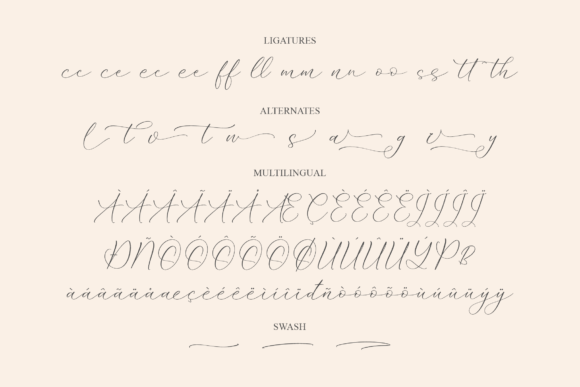 LIGATURES
cc ce ec ee ff ll mm nn oo ss tt th
ALTERNATES
l t o t w s a g v y
MULTILINGUAL
À Á Â Ã Ä Å Æ Ç È É Ê Ë Ì Í Î Ï
Ð Ñ Ò Ó Ô Õ Ö Ø Ù Ú Û Ü Ý Þ ß
à á â ã ä å æ ç è é ê ë ì í î ï đ ñ ò ó ô õ ö ù ú û ü ý ÿ
SWASH